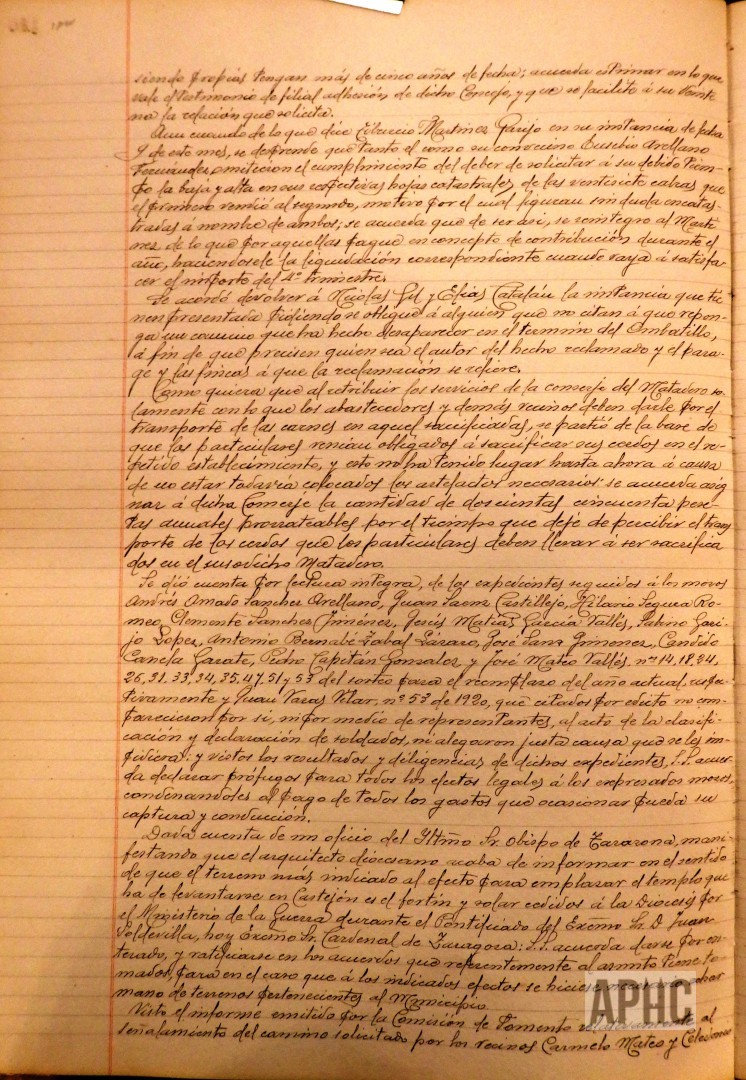 siendo propias tengan más de cinco años de fecha; acuerda estimar en lo que
vale el testimonio de filial adhesión de dicho Concejo, y que se facilite á su
na la relación que solicita.
Aun cuando de lo que dice Tiburcio Martinez Garijo en su instancia de fecha
9 de este mes, se desprende que tanto el como su convecino Eusebio Arellano
Fernandez, omitieron el cumplimiento del deber de solicitar á su debido tiem-
po la baja y alta en sus respectivas hojas catastrales, de las ventisiete cabras que
el primero vendió al segundo, motivo por el cual figuran sin duda encatas-
tradas á nombre de ambos; se acuerda que de ser asi, se reintegre al Marti-
nez de lo que por aquellas pague en concepto de contribución durante el
año, haciendosele la liquidación correspondiente cuando vaya á satisfa-
cer el importe del 4º trimestre.
Se acordó devolver á Nicolas Gil y Elias Catalán la instancia que tie-
nen presentada pidiendo se obligue á alguien que no citan á que repon-
ga un camino que ha hecho desaparecer en el termino del Ombatillo,
á fin de que precisen quien sea el autor del hecho reclamado y el para-
ge y las fincas á que la reclamación se refiere.
Como quiera que al retribuir los servicios de la conserje del Matadero so-
lamente con lo que los abastecedores y demás vecinos deben darle por el
transporte de las carnes en aquel sacrificadas, se partió de la base de
que los particulares venian obligados á sacrificar sus cerdos en el re-
petido establecimiento, y esto no ha tenido lugar hasta ahora á causa
de no estar todavia colocados los artefactos necesarios: se acuerda asig-
nar á dicha Conserje la cantidad de doscientas cincuenta pese-
tas anuales prorrateables por el tiempo que deje de percibir el trans
porte de los cerdos que los particulares deben llevar á ser sacrifica
dos en el susodicho Matadero.
Se dió cuenta por lectura integra, de los expedientes seguidos á los mozos
Andrés Amado Sanchez Arellano, Juan Saenz Castillejo, Hilario Segura Ro-
meo, Clemente Sanchez Jiménez, Jesús Matias Garcia Vallés, Sabino Gari-
jo Lopez, Antonio Bernabé Zabal Lázaro, José Sanz Gimenez, Candido
Canela Garate, Pedro Capitán Gonzalez y José Mateo Vallés nos 14, 18, 24,
26, 31, 33, 34, 35, 47, 51 y 53 del sorteo para el reemplazo del año actual, respec-
tivamente y Juan Vazas nº 53 de 1920, que citados por edicto no com-
parecieron por si, ni por medio de representantes, al acto de la clasifi-
cación y declaración de soldados, ni alegaron justa causa que se los im-
pidiera: y vistos los resultados y diligencias de dichos expedientes, S.S. acuer-
da declarar prófugos para todos los efectos legales á los expresados mozos,
condenandoles al pago de todos los gastos que ocasionar pueda su
captura y conducción.
Dada cuenta de un oficio del Yltmo Sr. Obispo de Tarazona, mani-
festando que el arquitecto diocesano acaba de informar en el sentido
de que el terreno más indicado al efecto para emplazar el templo que
ha de levantarse en Castejón es el fortin y solar cedidos á la Diocesis por
el Ministerio de la Guerra durante el Pontificado del Excmo Sr. D. Juan
Soldevilla, hoy Excmo Sr. Cardenal de Zaragoza: S.S. acuerda darse por en-
terado, y ratificarse en los acuerdos que referentemente al asunto tiene to-
mados, para en el caso que á los indicados efectos se hiciese necesario echar
mano de terrenos pertenecientes al Municipio.
Visto el informe emitido por la Comisión de Fomento al
señalamiento del camino solicitado por los vecinos Carmelo Mateo y Celedonio
APHC